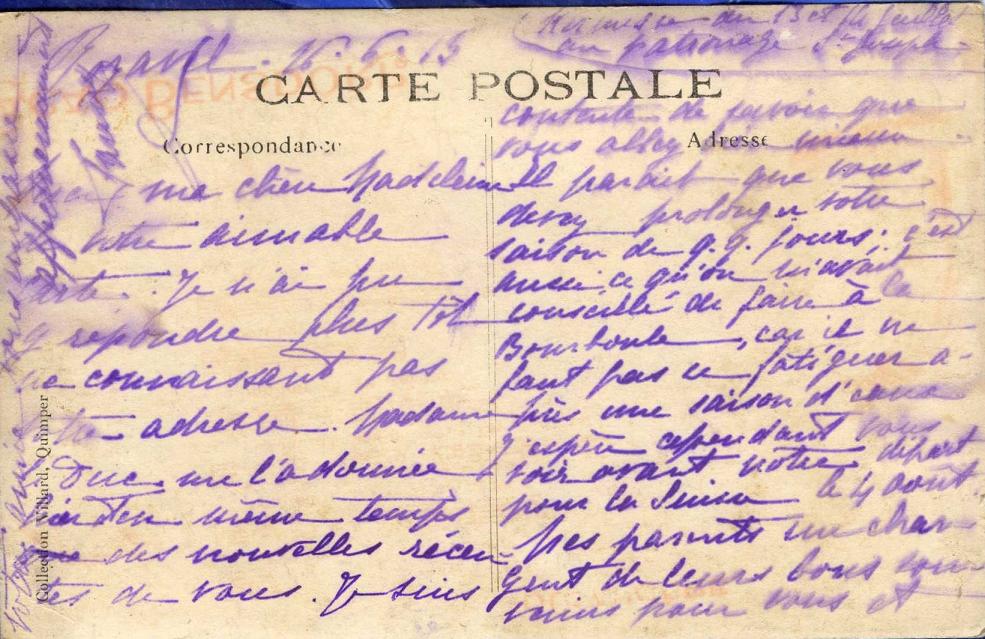 16.6.15
Kermesse du 13 et 14 Juillet
au patronage St Joseph
CARTE POSTALE
Correspondance
Adresse
ma chère Madeleine
votre aimable
carte. Je n'ai pu
y répondre plus tôt
ne connaissant pas
votre adresse. Madame
Duc me l'a donnée
en même temps
que des nouvelles récen-
tes de vous. Je suis
contente de savoir que
vous allez mieux.
Il parait que vous
devez prolonger votre
saison de q.q. jours; c'est
aussi ce qu'on m'avait
conseillé de faire à la
Bourboule, car il ne
faut pas se fatiguer a-
près une saison d'eaux
J'espère cependant vous
voir avant notre départ
pour la Suisse le 4 août.
Mes parents me char-
gent de leurs bons sou-
venirs pour vous et
affectueusement
Collection Villard, Quimper